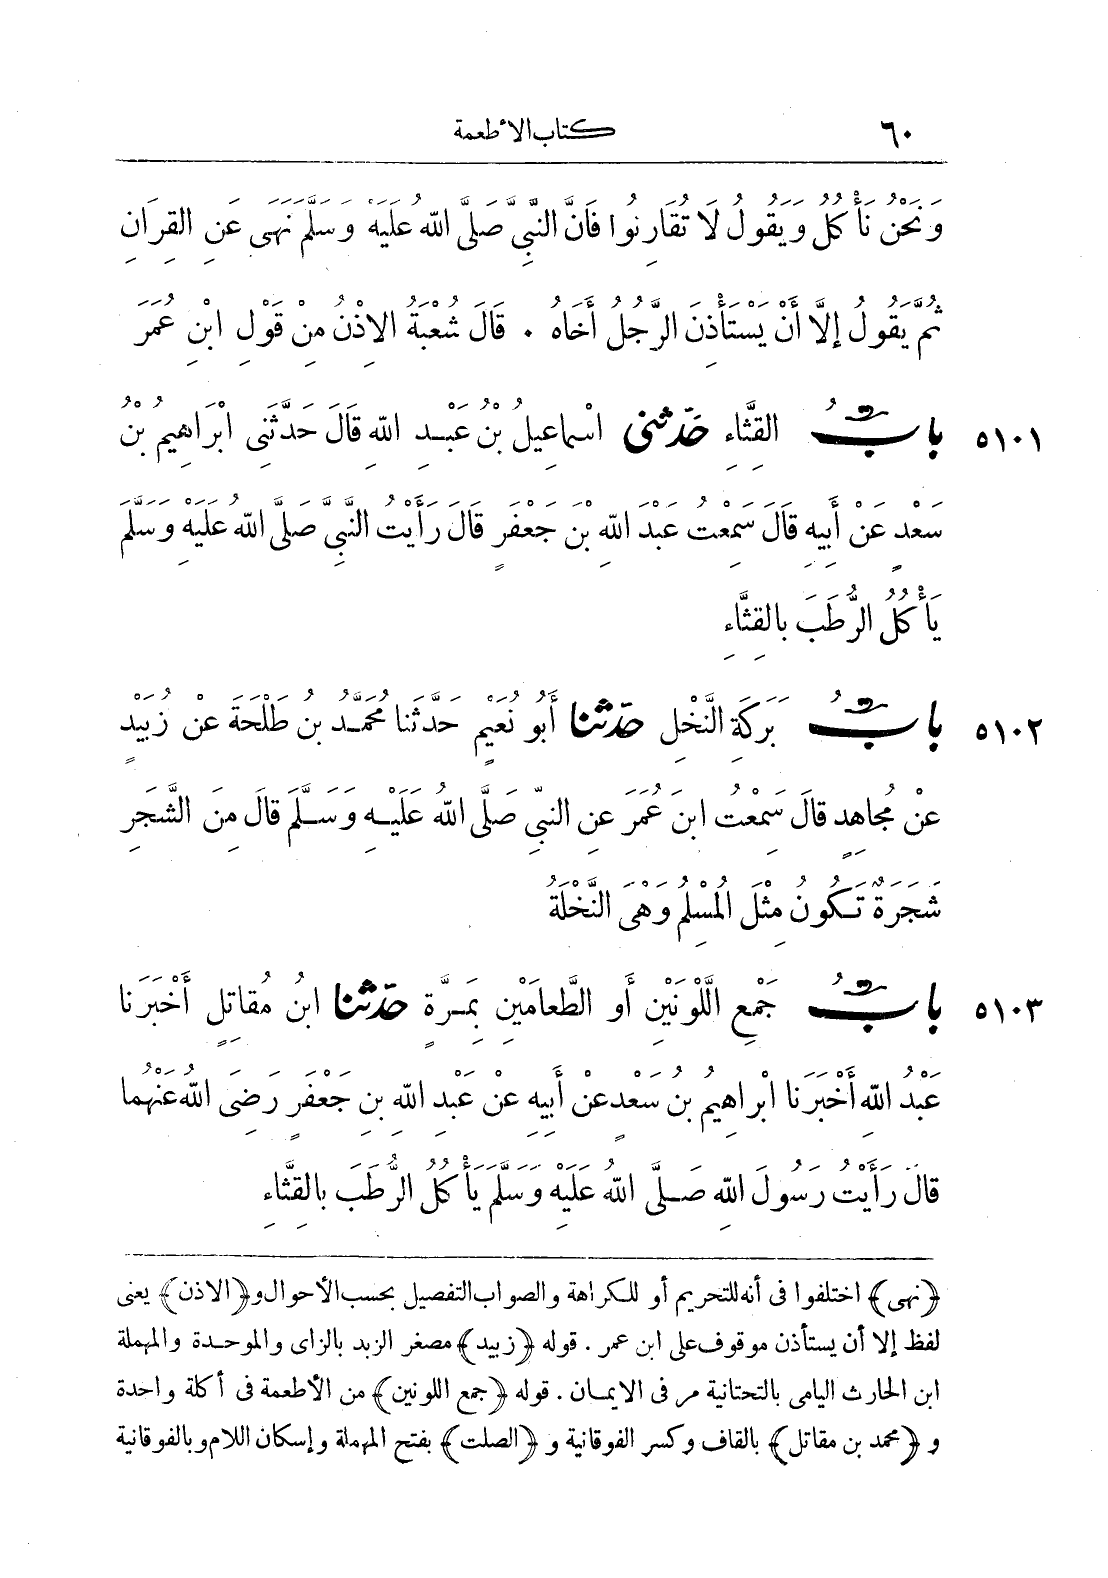 ٦٠ كتاب الأطعمة
وَنَحْنُ نَأْكُلُ وَيَقُولُ لَا تُقَارِنُوا فَإِنَّ النَّبِيَّ صَلَّى اللهُ عَلَيْهِ وَسَلَّمَ نَهَى عَنِ القِرَانِ
ثُمَّ يَقُولُ إِلَّا أَنْ يَسْتَأْذِنَ الرَّجُلُ أَخَاهُ . قَالَ شُعْبَةُ الإِذْنُ مِنْ قَوْلِ ابْنِ عُمَرَ
٥١٠١ بَابُ القِثَّاءِ حَدَّثَنِي اسْمَاعِيلُ بْنُ عَبْدِ اللهِ قَالَ حَدَّثَنِى ابْرَاهِيمُ بْنُ
سَعْدٍ عَنْ أَبِيهِ قَالَ سَمِعْتُ عَبْدَ اللهِ بْنَ جَعْفَرٍ قَالَ رَأَيْتُ النَّبِيَّ صَلَّى اللهُ عَلَيْهِ وَسَلَّمَ
يَأْكُلُ الرُّطَبَ بِالقِثَّاءِ
٥١٠٢ بَابُ بَرَكَةِ النَّخْلِ حَدَّثَنَا أَبُو نُعَيْمٍ حَدَّثَنَا مُحَمَّدُ بنُ طَلْحَةَ عَنْ زُبَيْدٍ
عَنْ مُجَاهِدٍ قَالَ سَمِعْتُ ابنَ عُمَرَ عَنِ النبيِّ صَلَّى اللهُ عَلَيْهِ وَسَلَّمَ قَالَ مِنَ الشَّجَرِ
شَجَرَةٌ تَكُونُ مِثْلَ المُسْلِمِ وَهْىَ النَّخْلَةُ
٥١٠٣ بَابُ جَمْعِ اللَّوْنَيْنِ أَوِ الطَّعَامَيْنِ بِمَرَّةٍ حَدَّثَنَا ابنُ مُقَاتِلٍ أَخْبَرَنَا
عَبْدُ اللهِ أَخْبَرَنَا ابْرَاهِيمُ بنُ سَعْدٍ عَنْ أَبِيهِ عَنْ عَبْدِ اللهِ بنِ جَعْفَرٍ رَضِىَ اللهُ عَنْهُمَا
قَالَ رَأَيْتُ رَسُولَ اللهِ صَلَّى اللهُ عَلَيْهِ وَسَلَّمَ يَأْكُلُ الرُّطَبَ بِالقِثَّاءِ
﴿نهى﴾ اختلفوا فى أنه للتحريم أو للكراهة والصواب التفصيل بحسب الأحوال و﴿الاذن﴾ يعنى
لفظ إلا أن يستأذن موقوف على ابن عمر . قوله ﴿زبيد﴾ مصغر الزبد بالزاى والموحدة والمهملة
ابن الحارث اليامى بالتحتانية مر فى الايمان . قوله ﴿جمع اللونين﴾ من الأطعمة فى أكلة واحدة
و ﴿محمد بن مقاتل﴾ بالقاف وكسر الفوقانية و ﴿الصلت﴾ بفتح المهملة وإسكان اللام وبالفوقانية